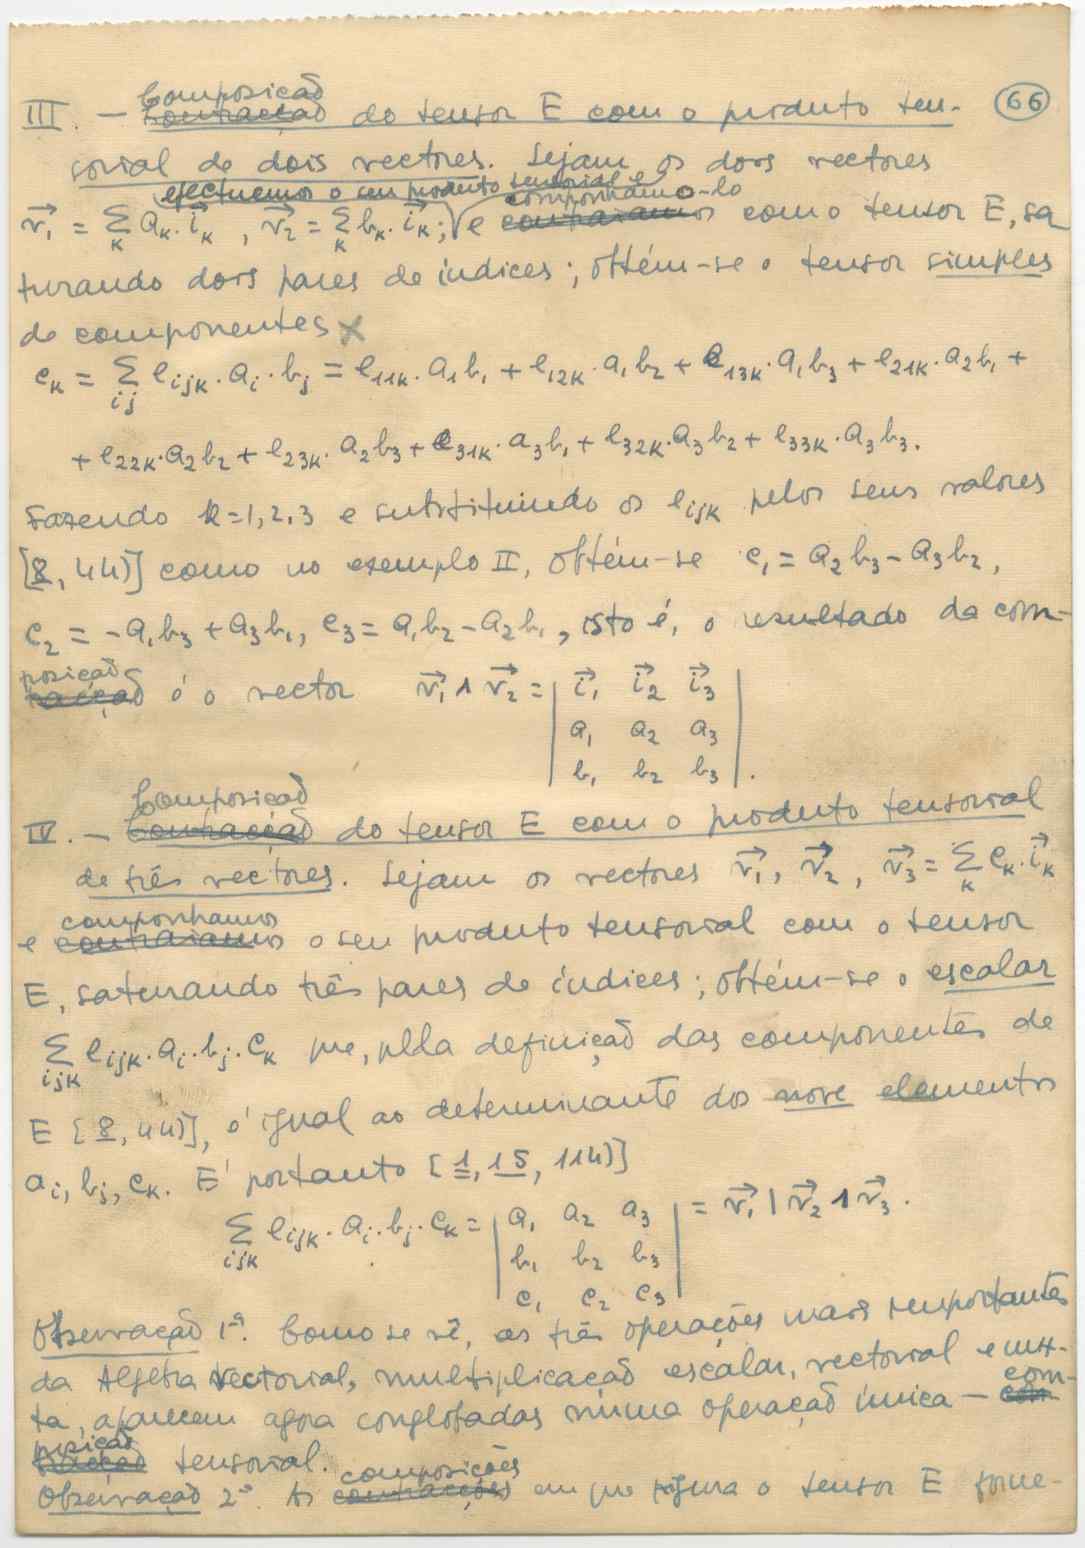 Composição
III. — ~~Contracção~~ do tensor E com o produto ten- 66
sorial de dois vectores. Sejam os dois vectores
efectuemos o seu produto tensorial e componhamo-lo
v⃗₁ = Σₖ aₖ.i⃗ₖ , v⃗₂ = Σₖ bₖ.i⃗ₖ; e ~~contraiamos~~ com o tensor E, sa
turando dois pares de índices; obtém-se o tensor simples
de componentes x
cₖ = Σᵢⱼ eᵢⱼₖ.aᵢ.bⱼ = e₁₁ₖ.a₁b₁ + e₁₂ₖ.a₁b₂ + e₁₃ₖ.a₁b₃ + e₂₁ₖ.a₂b₁ +
+ e₂₂ₖ.a₂b₂ + e₂₃ₖ.a₂b₃ + e₃₁ₖ.a₃b₁ + e₃₂ₖ.a₃b₂ + e₃₃ₖ.a₃b₃.
Fazendo k=1,2,3 e substituindo os eᵢⱼₖ pelos seus valores
[8, 44)] como no exemplo II, obtém-se c₁ = a₂b₃ - a₃b₂,
c₂ = -a₁b₃ + a₃b₁, c₃ = a₁b₂ - a₂b₁, isto é, o resultado da com-
posição
~~tracção~~ é o vector v⃗₁ ∧ v⃗₂ = | i⃗₁ i⃗₂ i⃗₃ |
a₁ a₂ a₃
b₁ b₂ b₃ .
Composição
IV. — ~~Contracção~~ do tensor E com o produto tensorial
de três vectores. Sejam os vectores v⃗₁, v⃗₂, v⃗₃ = Σₖ cₖ.i⃗ₖ
componhamos
e ~~contraiamos~~ o seu produto tensorial com o tensor
E, saturando três pares de índices; obtém-se o escalar
Σᵢⱼₖ eᵢⱼₖ.aᵢ.bⱼ.cₖ que, pela definição das componentes de
E [8, 44)], é igual ao determinante dos nove elementos
aᵢ, bⱼ, cₖ. É portanto [1, 15, 114)]
Σᵢⱼₖ eᵢⱼₖ.aᵢ.bⱼ.cₖ = | a₁ a₂ a₃ | = v⃗₁ | v⃗₂ ∧ v⃗₃ .
b₁ b₂ b₃
c₁ c₂ c₃
Observação 1ª. Como se vê, as três operações mais importantes
da Algebra Vectorial, multiplicação escalar, vectorial e mix-
com-
ta, aparecem agora conglobadas numa operação única — ~~con~~
posição
~~tracção~~ tensorial.
composições
Observação 2ª. As ~~contracções~~ em que figura o tensor E forne-